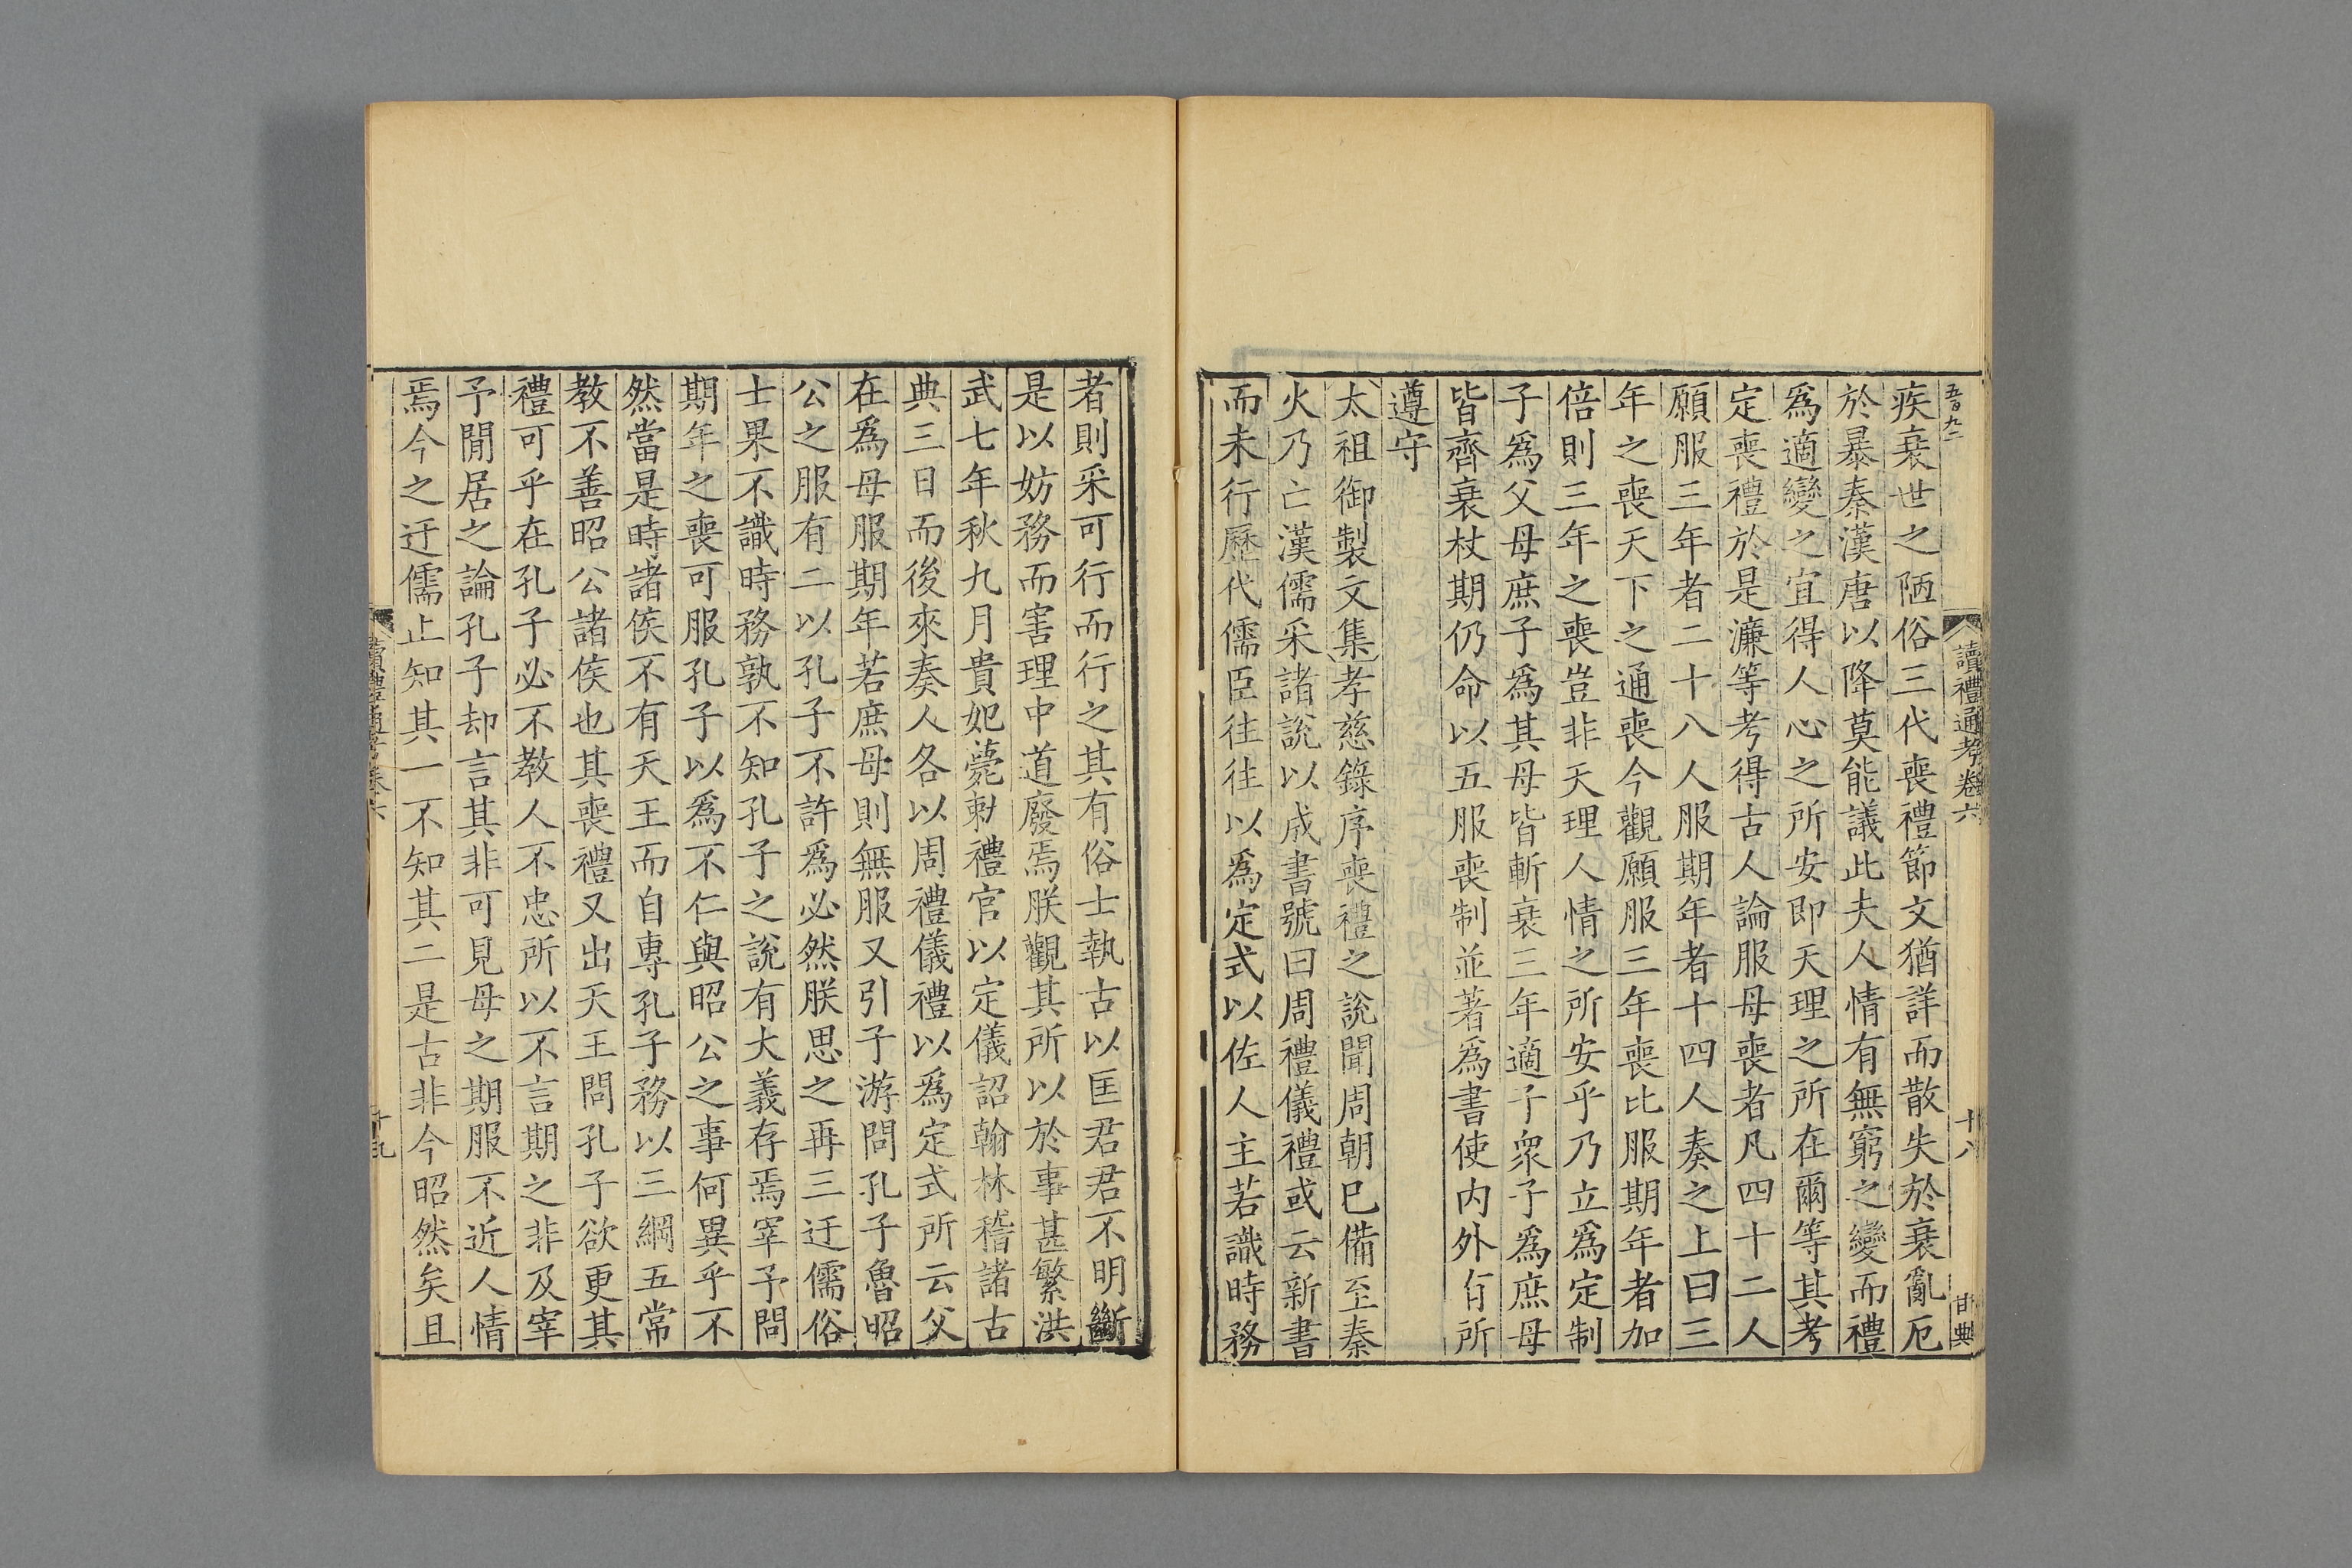 五百九二
讀禮通考卷六
十八
甘典
疾衰世之陋俗三代喪禮節文猶詳而散失於衰亂厄
於暴秦漢唐以降莫能議此夫人情有無窮之變而禮
爲適變之宜得人心之所安即天理之所在爾等其考
定喪禮於是濂等考得古人論服母喪者凡四十二人
願服三年者二十八人服期年者十四人奏之上曰三
年之喪天下之通喪今觀願服三年喪比服期年者加
倍則三年之喪豈非天理人情之所安乎乃立爲定制
子爲父母庶子爲其母皆斬衰三年適子衆子爲庶母
皆齊衰杖期仍命以五服喪制並著爲書使内外有所
遵守
太祖御製文集孝慈錄序喪禮之說聞周朝已備至秦
火乃亡漢儒采諸說以成書號曰周禮儀禮或云新書
而未行歷代儒臣往往以爲定式以佐人主若識時務
者則采可行而行之其有俗士執古以匡君君不明斷
是以妨務而害理中道廢焉朕觀其所以於事甚繁洪
武七年秋九月貴妃薨勅禮官以定儀詔翰林稽諸古
典三日而後來奏人各以周禮儀禮以爲定式所云父
在爲母服期年若庶母則無服又引子游問孔子魯昭
公之服有二以孔子不許爲必然朕思之再三迂儒俗
士果不識時務孰不知孔子之說有大義存焉宰予問
期年之喪可服孔子以爲不仁與昭公之事何異乎不
然當是時諸侯不有天王而自專孔子務以三綱五常
教不善昭公諸侯也其喪禮又出天王問孔子欲更其
禮可乎在孔子必不教人不忠所以不言期之非及宰
予閒居之論孔子却言其非可見母之期服不近人情
焉今之迂儒止知其一不知其二是古非今昭然矣且
讀禮通考卷六
十九